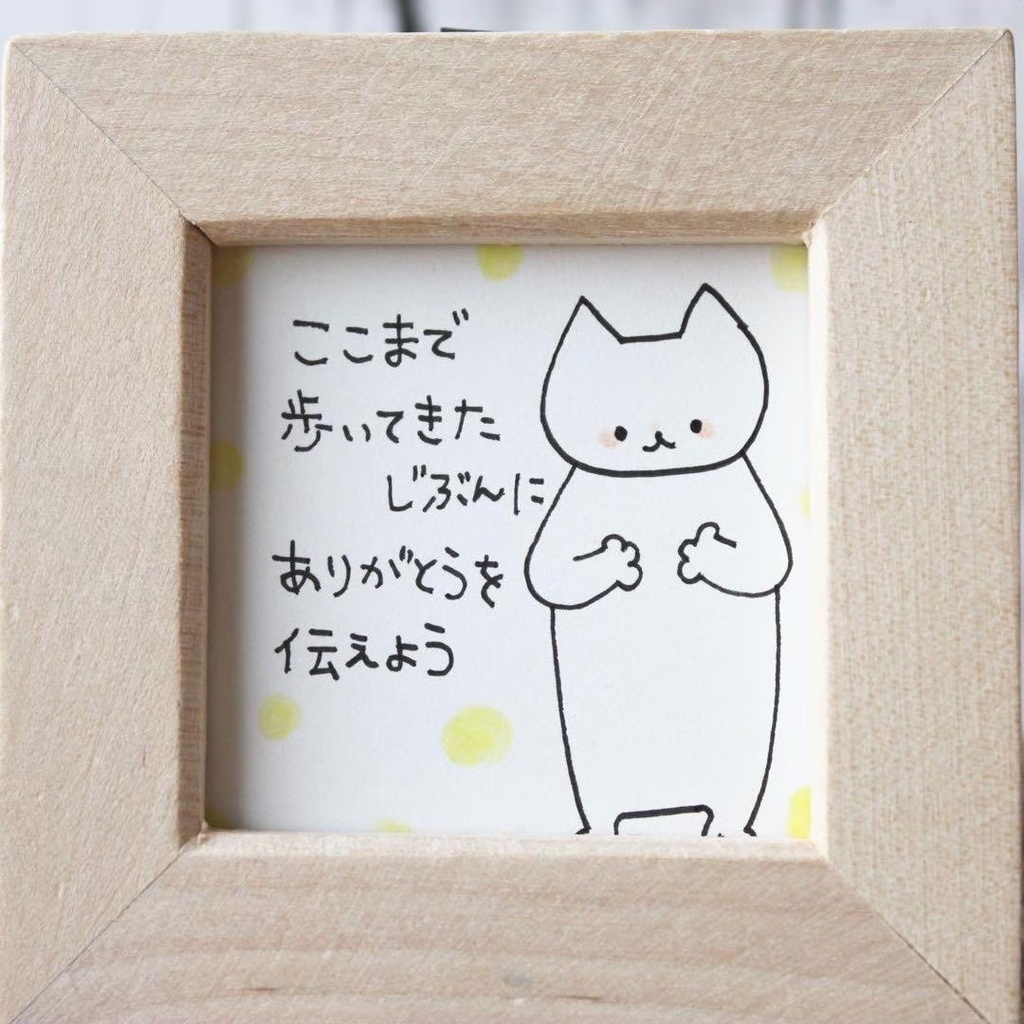 ここまで
歩いてきた
じぶんに
ありがとうを
伝えよう